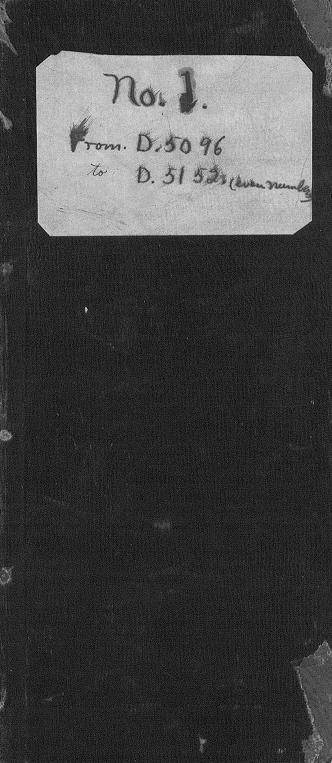 No. 1.
From. D. 5096
to D. 5152 (even number